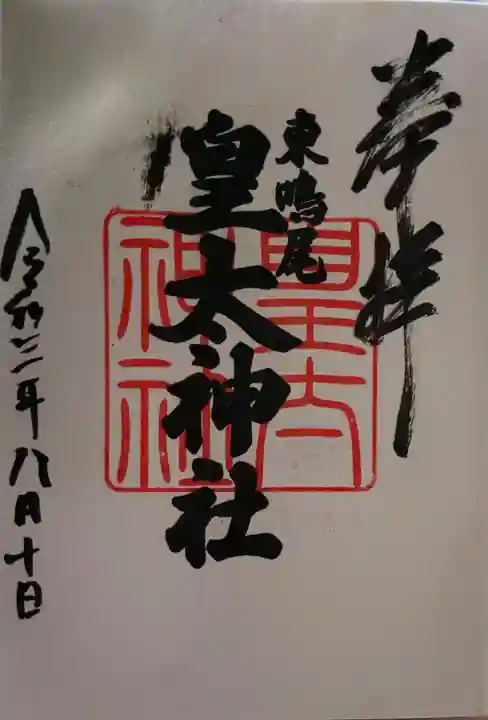 奉拝
東鳴尾
皇太神社
皇太神社
令和三年八月十日